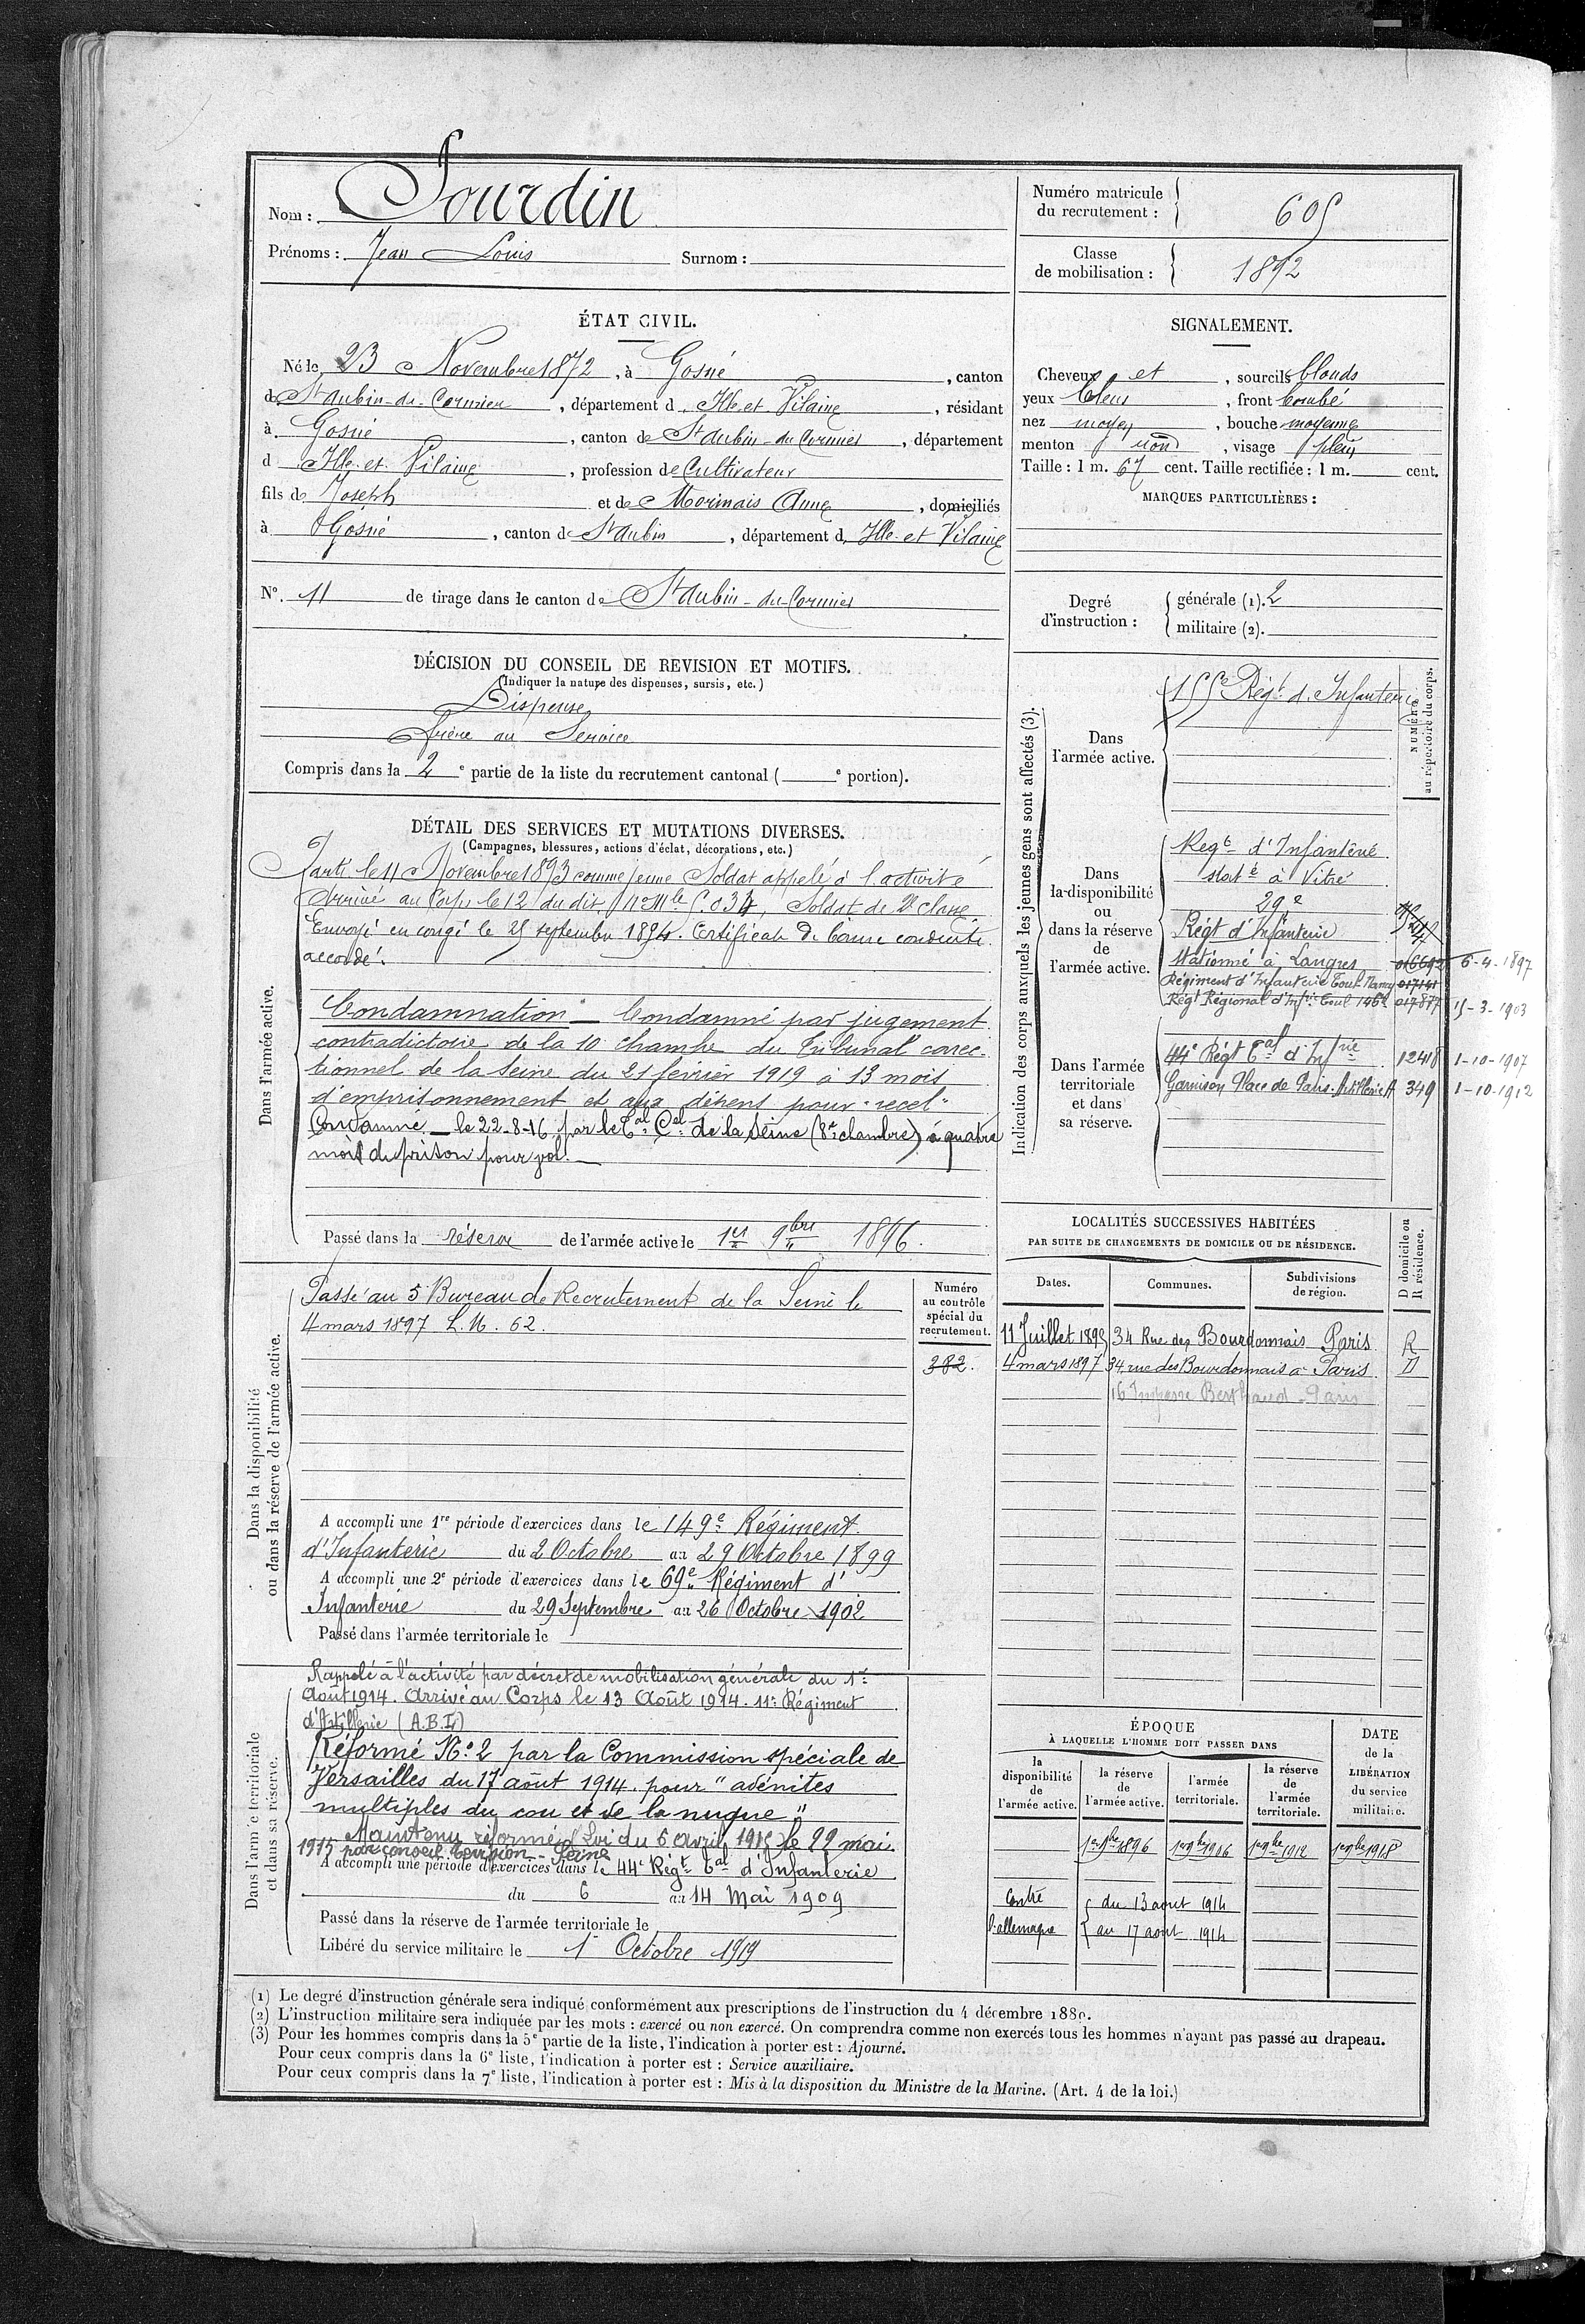 Nom : Jourdin
Prénoms : Jean Louis Surnom :
Numéro matricule
du recrutement : 605
Classe
de mobilisation : 1892
ÉTAT CIVIL.
Né le 23 Novembre 1872, à Gosné, canton
d St Aubin-du-Cormier, département d Ille et Vilaine, résidant
à Gosné, canton de St Aubin-du-Cormier, département
d Ille et Vilaine, profession de Cultivateur
fils de Joseph et de Morinais Anne, domiciliés
à Gosné, canton de St Aubin, département d Ille et Vilaine
N° 11 de tirage dans le canton de St Aubin-du-Cormier
SIGNALEMENT.
Cheveux et, sourcils blonds
yeux bleus, front bombé
nez moyen, bouche moyenne
menton rond, visage plein
Taille : 1 m. 67 cent. Taille rectifiée : 1 m. cent.
MARQUES PARTICULIÈRES :
Degré
d'instruction :
générale (1). 2
militaire (2).
DÉCISION DU CONSEIL DE REVISION ET MOTIFS.
(Indiquer la nature des dispenses, sursis, etc.)
Dispense
frère au Service
Compris dans la 2e partie de la liste du recrutement cantonal ( e portion).
DÉTAIL DES SERVICES ET MUTATIONS DIVERSES.
(Campagnes, blessures, actions d'éclat, décorations, etc.)
Dans l'armée active.
Parti le 11 Novembre 1893 comme jeune Soldat appelé à l'activité
Arrivé au Corps le 12 du dit, n° Mle 5.034, Soldat de 2e classe.
Envoyé en congé le 25 septembre 1894. Certificat de bonne conduite
accordé.
Condamnation - Condamné par jugement
contradictoire de la 10 chambre du Tribunal correc-
tionnel de la Seine du 21 fevrier 1919 à 13 mois
d'emprisonnement et aux dépens pour "recel"
Condamné - le 22-8-16 par le Tal Cel de la Seine (8e chambre) à quatre
mois de prison pour vol. -
Passé dans la réserve de l'armée active le 1er 9bre 1896.
Indication des corps auxquels les jeunes gens sont affectés (3).
NUMÉRO
au répertoire du corps.
Dans
l'armée active.
155e Régt d'Infanterie
Dans
la disponibilité
ou
dans la réserve
de
l'armée active.
Régt d'Infanterie
statné à Vitré
29e
Régt d'Infanterie
Stationné à Langres 016692 6-4-1897
Régiment d'Infanterie Toul-Nancy 017141
Régt Régional d'Infie Toul 146e 017877 15-3-1903
Dans l'armée
territoriale
et dans
sa réserve.
44e Régt Tal d'Infrie 12418 1-10-1907
Garnison Place de Paris. Artillerie A 349 1-10-1912
Dans la disponibilité
ou dans la réserve de l'armée active.
Passé au 5 Bureau de Recrutement de la Seine le
4 mars 1897 L.N. 62.
Numéro
au contrôle
spécial du
recrutement.
382.
A accompli une 1re période d'exercices dans le 149e Régiment
d'Infanterie du 2 Octobre au 29 Octobre 1899
A accompli une 2e période d'exercices dans le 69e Régiment d'
Infanterie du 29 Septembre au 26 Octobre 1902
Passé dans l'armée territoriale le
LOCALITÉS SUCCESSIVES HABITÉES
PAR SUITE DE CHANGEMENTS DE DOMICILE OU DE RÉSIDENCE.
Dates. Communes. Subdivisions
de région.
D domicile ou
R résidence.
11 Juillet 1895 34 Rue des Bourdonnais Paris R
4 mars 1897 34, rue des Bourdonnais à Paris D
16 Impasse Berthaud - Paris
Dans l'armée territoriale
et dans sa réserve.
Rappelé à l'activité par décret de mobilisation générale du 1er
Août 1914. Arrivé au Corps le 13 Août 1914. 11e Régiment
d'Artillerie
Réformé N° 2 par la Commission spéciale de
Versailles du 17 août 1914. pour "adénites
multiples du cou et de la nuque"
Maintenu réformé (Loi du 6 avril 1915) le 22 mai
1915 par conseil revision - Seine
A accompli une période d'exercices dans le 44e Régt Tal d'Infanterie
du 6 au 14 Mai 1909
Passé dans la réserve de l'armée territoriale le
Libéré du service militaire le 1er Octobre 1919
ÉPOQUE
À LAQUELLE L'HOMME DOIT PASSER DANS
la
disponibilité
de
l'armée active.
la réserve
de
l'armée active.
l'armée
territoriale.
la réserve
de
l'armée
territoriale.
DATE
de la
LIBÉRATION
du service
militaire.
1er 9bre 1896 1er 9bre 1906 1er 9bre 1912 1er 9bre 1918
Contre { du 13 aout 1914
l'allemagne { au 17 aout 1914
(1) Le degré d'instruction générale sera indiqué conformément aux prescriptions de l'instruction du 4 décembre 1889.
(2) L'instruction militaire sera indiquée par les mots : exercé ou non exercé. On comprendra comme non exercés tous les hommes n'ayant pas passé au drapeau.
(3) Pour les hommes compris dans la 5e partie de la liste, l'indication à porter est : Ajourné.
Pour ceux compris dans la 6e liste, l'indication à porter est : Service auxiliaire.
Pour ceux compris dans la 7e liste, l'indication à porter est : Mis à la disposition du Ministre de la Marine. (Art. 4 de la loi.)